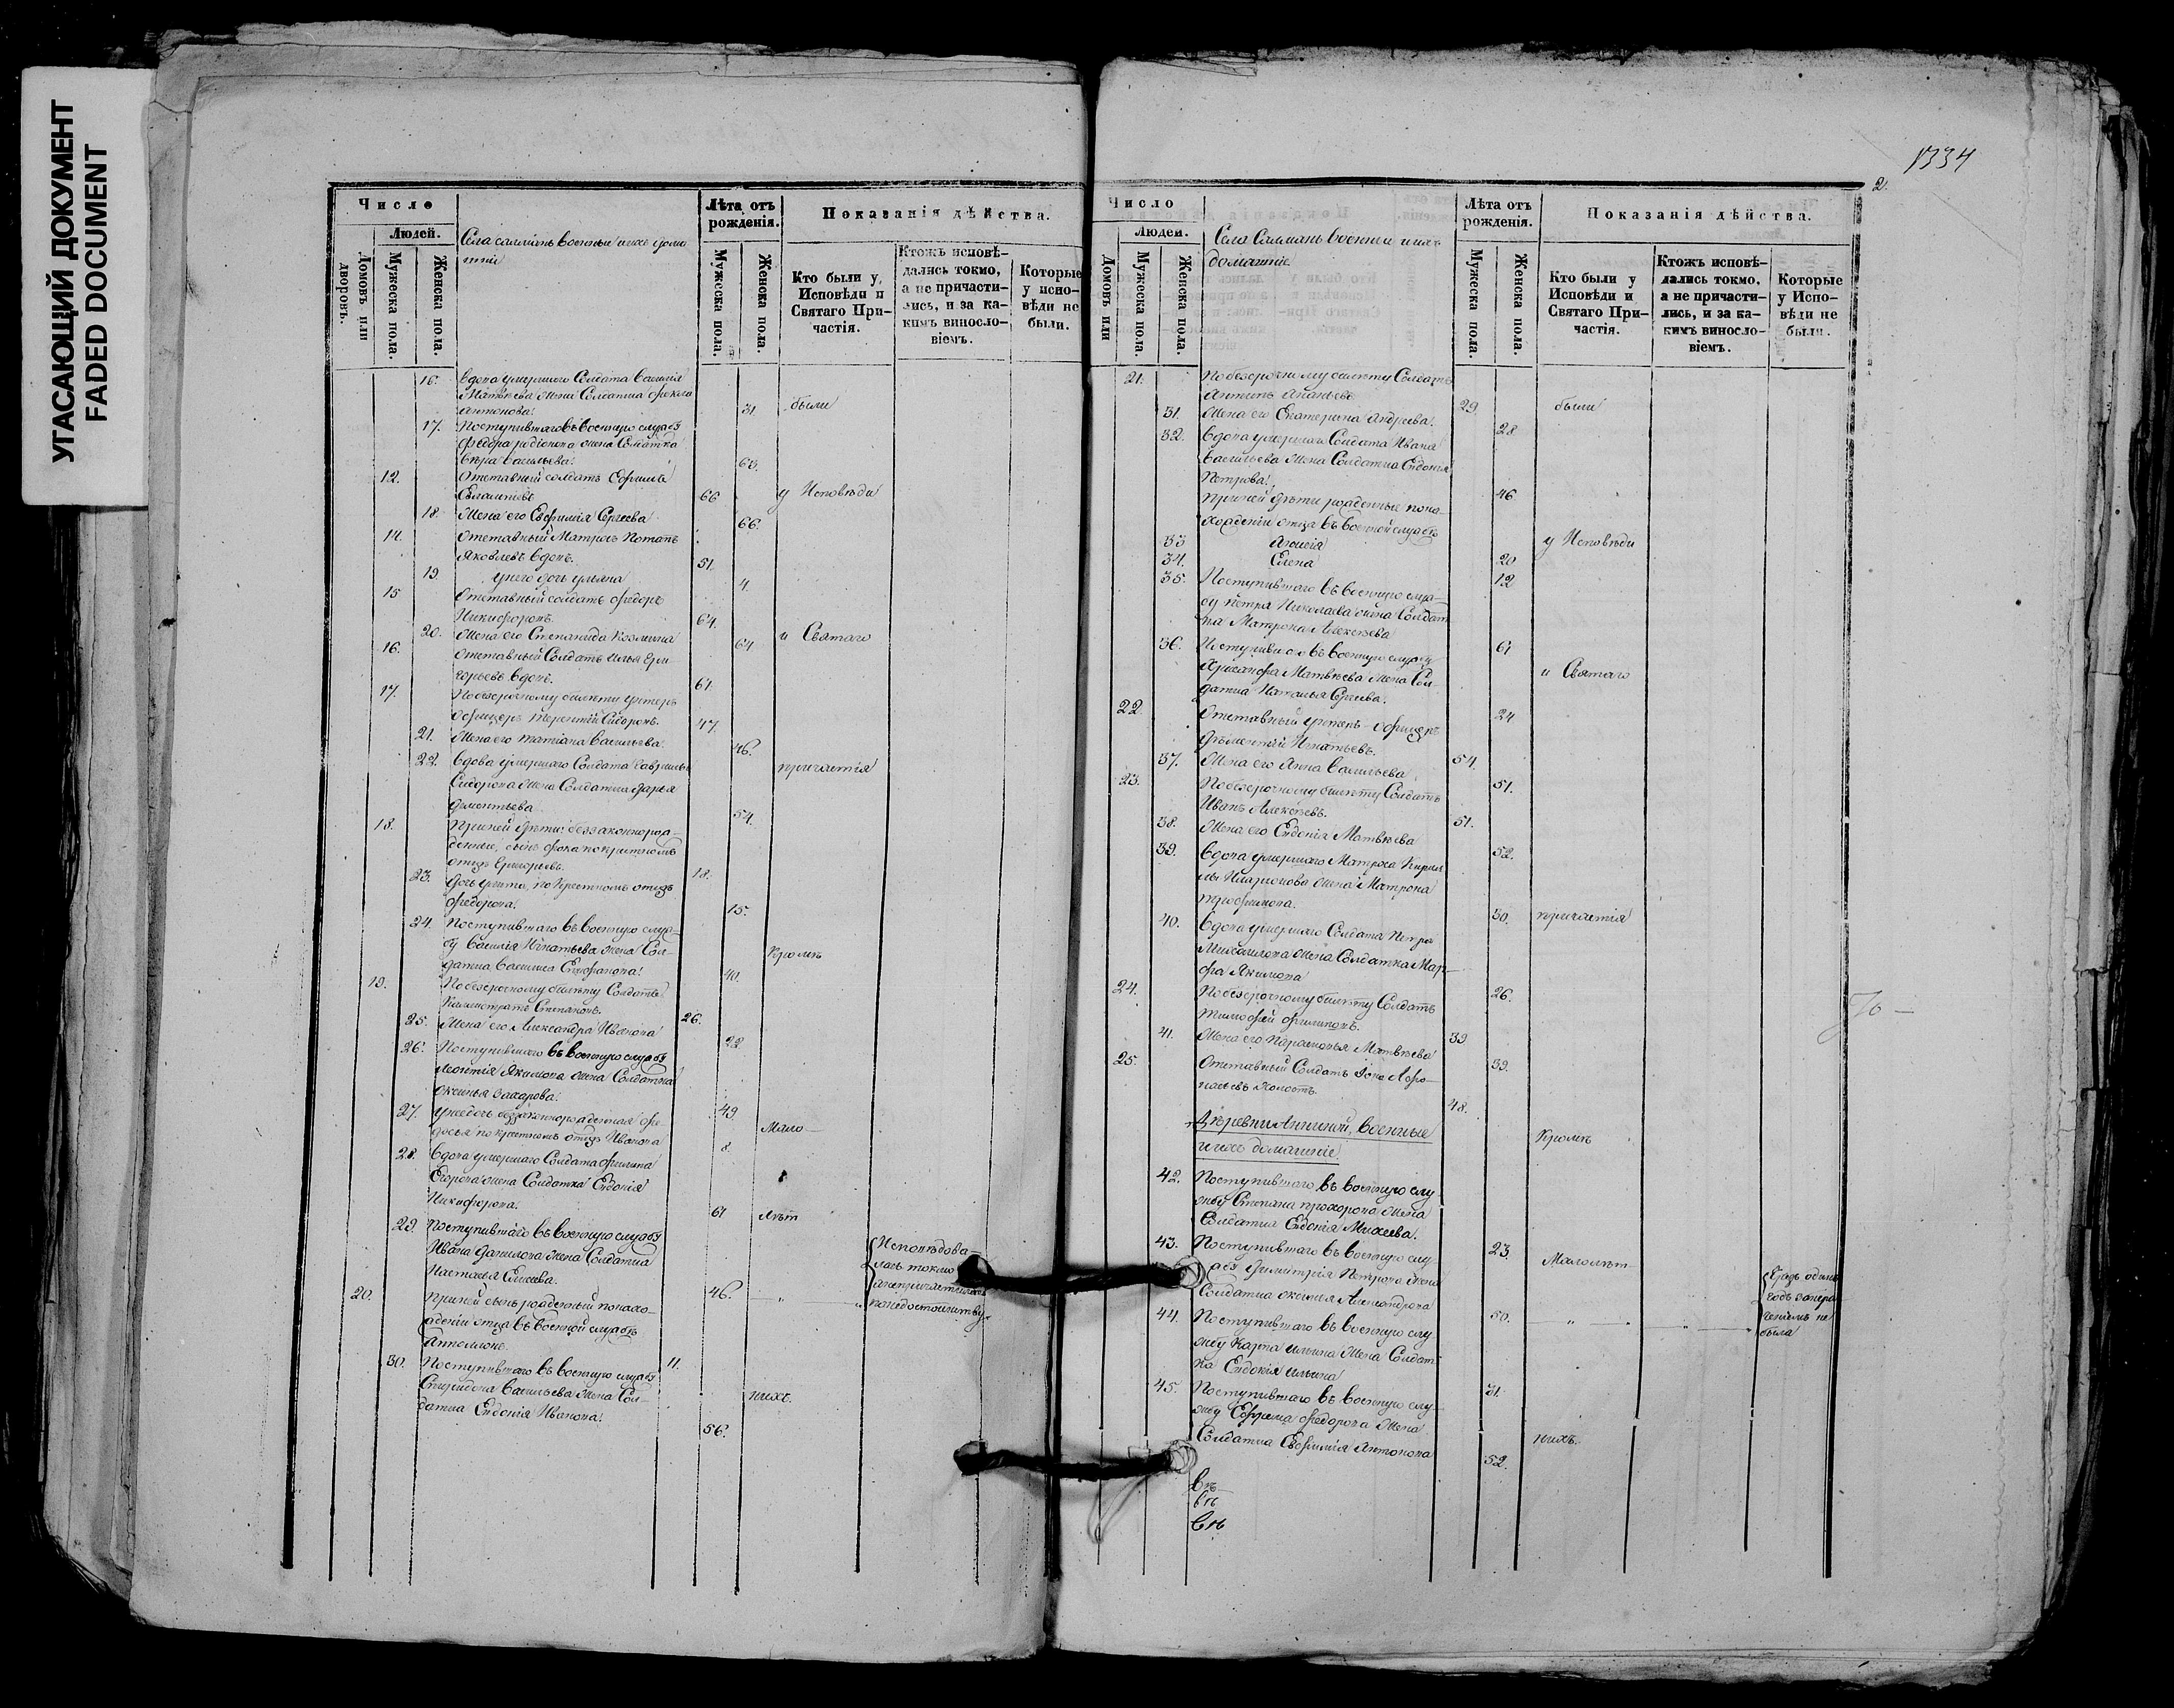 УГАСАЮЩИЙ ДОКУМЕНТ
FADED DOCUMENT
Число
Людей.
Домовъ или дворовъ.
Мужеска пола.
Женска пола.
Села военные и ихъ дома
шніе
Лѣта отъ рожденія.
Мужеска пола.
Женска пола.
Показанія дѣйства.
Кто были у Исповѣди и Святаго Причастія.
Ктожъ исповѣдались токмо, а не причастились, и за какимъ винословіемъ.
Которые у исповѣди не были.
16. Вдова умершаго Солдата Василія
Матвѣева жена Солдатка
Антонова. 31 были
17. Поступившаго въ военную службу
Федора Родіонова жена Солдатка
Вѣра Васильева. 63.
12. Отставный солдатъ Ефимъ
66 у Исповѣди
18. Жена его Евфимія Сергеева 66.
14. Отставный Матросъ Потапъ
Яковлевъ вдовъ. 51.
19. у него дочь Ульяна 4.
15 Отставный солдатъ Федоръ
Никифоровъ. 64.
20. Жена его Степанида Козмина 64 и Святаго
16. Отставный Солдатъ Илья Гри
горьевъ вдовъ. 61.
17. По безсрочному билету Унтеръ
Офицеръ Терентій Сидоровъ. 47.
21. Жена его Татіана Васильева. 46.
22. Вдова умершаго Солдата Гаврилы
Сидорова жена Солдатка Дарья
Дементьева. 54. причастія
18. При ней дѣти: беззаконнорож-
денные, сынъ Фока по крестномъ
отцѣ Григорьевъ. 18.
23. Дочь Улита, по Крестномъ отцѣ
Федорова. 15.
24. Поступившаго въ военную служ-
бу Василія Игнатьева жена Сол-
датка Василиса Епифанова. 40. Кромѣ
19. По безсрочному билету Солдатъ
Степановъ. 26.
25. Жена его Александра Иванова 22
26. Поступившаго въ военную службу
Леонтія Якимова жена Солдатка
Оксинья Захарова. 49
27. У нее дочь беззаконнорожденная Фе
досья по крестномъ отцѣ Иванова 8. Мало-
28. Вдова умершаго Солдата Филипа
Егорова жена Солдатка Евдокія
Никифорова. 61 лѣт
29. Поступившаго въ военную службу
Ивана Данилова жена Солдатка
Настасья Елисеева. 46.
Исповѣдова-
лась токмо
а не причастилась
по недостоинству.
20. При ней сынъ рожденный по нахо-
жденіи отца въ военной службѣ
11.
30. Поступившаго въ военную службу
Спиридона Васильева жена Сол-
датка Евдокія Иванова. 56. нихъ.
1334
2.
Число
Людей.
Домовъ или
Мужеска пола.
Женска пола.
Села военные и ихъ
домашніе
Лѣта отъ рожденія.
Мужеска пола.
Женска пола.
Показанія дѣйства.
Кто были у Исповѣди и Святаго Причастія.
Ктожъ исповѣдались токмо, а не причастились, и за какимъ винословіемъ.
Которые у Исповѣди не были.
21. По безсрочному билету Солдатъ
Антипъ Ананьевъ 29. были
31. Жена его Екатерина Андреева. 28
32. Вдова умершаго Солдата Ивана
Васильева жена Солдатка Евдокія
Петрова. 46
При ней дѣти рожденные по на-
хожденіи отца въ военной службѣ
33 Аксинія 20 у Исповѣди
34. Елена 12
35. Поступившаго въ военную служ-
бу Петра Николаева жена Солдат
ка Матрона Алексѣева 61
36. Поступившаго въ военную службу
Хрисанфа Матвѣева жена Сол-
датка Наталья Сергеева. 24 и Святаго
22. Отставный унтеръ-офицеръ
Дементій Игнатьевъ. 54.
37. Жена его Анна Васильева 51.
23. По безсрочному билету Солдатъ
Иванъ Алексѣевъ. 51.
38. Жена его Евдокія Матвѣева 52.
39. Вдова умершаго Матроса Кирил
лы Иларионова жена Матрона
Трофимова. 30. причастія
40. Вдова умершаго Солдата Петра
Михаилова жена Солдатка Мар-
фа Якимова 26.
24. По безсрочному билету Солдатъ
Тимофей Филиповъ. 39
41. Жена его Парасковья Матвѣева 39.
25. Отставный Солдатъ Іона Афо-
насьевъ холостъ. 48.
Деревни военные
и ихъ домашніе. Кромѣ
42. Поступившаго въ военную слу
жбу Степана Прохорова жена
Солдатка Евдокія Михеева. 23.
43. Поступившаго въ военную слу
жбу Димитрія Петрова жена
Солдатка Оксинья Александрова 50. Малолѣт
годъ
не
была
44. Поступившаго въ военную слу
жбу Карпа Ильина жена Солдат
ка Евдокія Ильина 31.
45. Поступившаго въ военную слу-
жбу Ефрема Федорова жена
Солдатка Евфимія Антонова 52. нихъ.